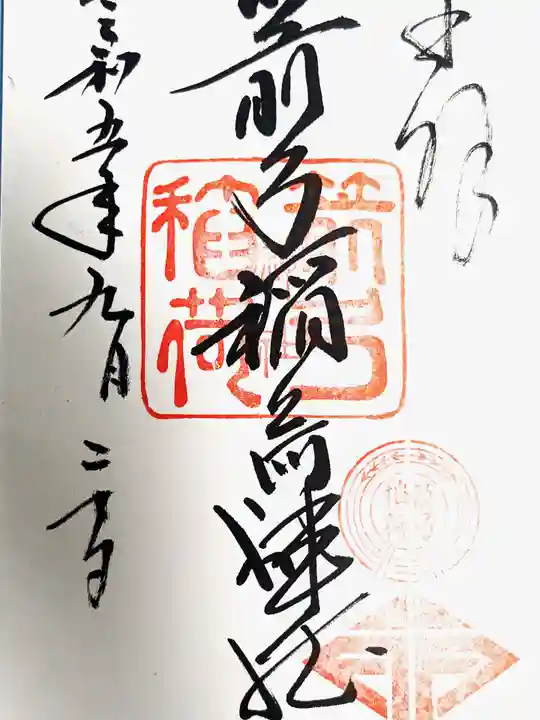 奉拝
箭弓稲荷神社
令和五年九月二十日
箭弓
稲荷